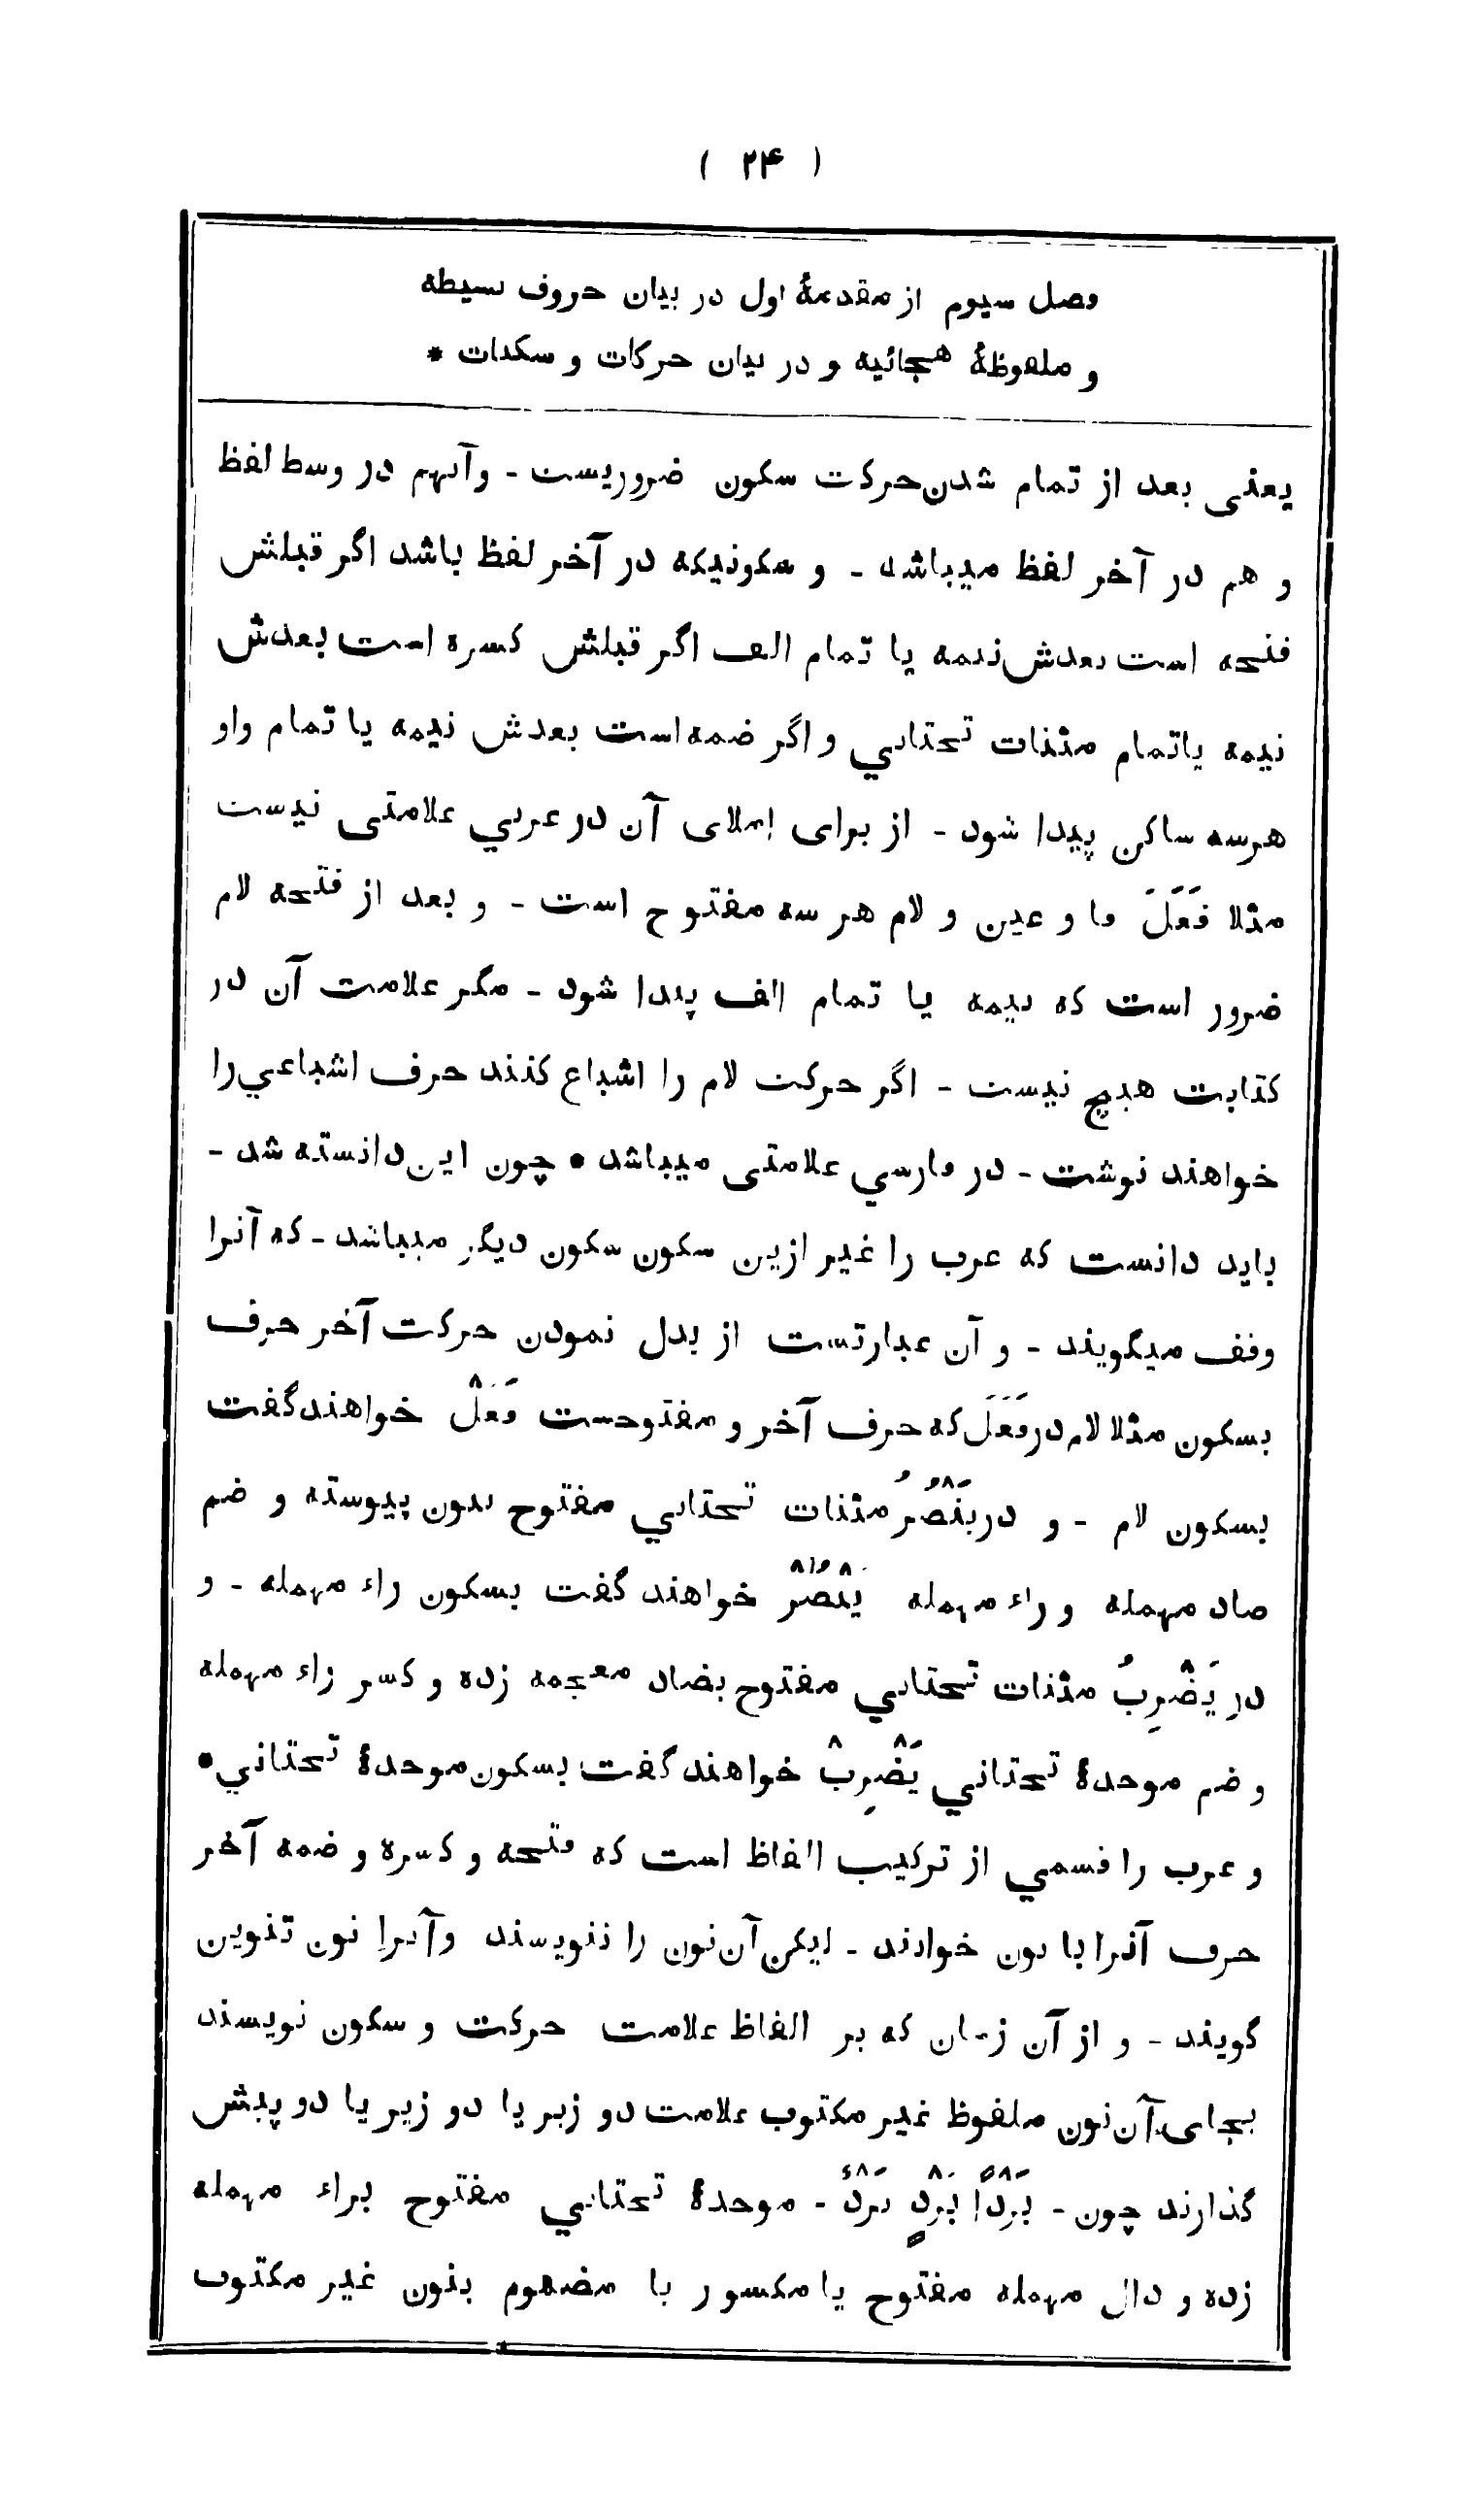 ( ۲۴ )
فصل سیوم از مقدمهٔ اول در بیان حروف بسیطه
و ملفوظهٔ هجائیه و در بیان حرکات و سکنات *
یعنی بعد از تمام شدن حرکت سکون ضروریست - وآنهم در وسط لفظ
و هم در آخر لفظ میباشد - و سکونیکه در آخر لفظ باشد اگر قبلش
فتحه است بعدش نیمه یا تمام الف اگر قبلش کسره است بعدش
نیمه یاتمام مثنات تحتانی و اگر ضمه است بعدش نیمه یا تمام واو
هرسه ساکن پیدا شود - از برای املای آن در عربی علامتی نیست
مثلا فَعَلَ فا و عین و لام هر سه مفتوح است - و بعد از فتحه لام
ضرور است که نیمه یا تمام الف پیدا شود - مگر علامت آن در
کتابت هیچ نیست - اگر حرکت لام را اشباع کنند حرف اشباعی را
خواهند نوشت - در فارسی علامتی میباشد • چون این دانسته شد -
باید دانست که عرب را غیر ازین سکون سکون دیگر میباشد - که آنرا
وقف میگویند - و آن عبارتست از بدل نمودن حرکت آخر حرف
بسکون مثلا لام در فَعَلَ که حرف آخر و مفتوحست فَعَلْ خواهند گفت
بسکون لام - و در یَنْصُرُ مثنات تحتانی مفتوح بنون پیوسته و ضم
صاد مهمله و راء مهمله یَنْصُرْ خواهند گفت بسکون راء مهمله - و
در یَضْرِبُ مثنات تحتانی مفتوح بضاد معجمه زده و کسر راء مهمله
و ضم موحدهٔ تحتانی یَضْرِبْ خواهند گفت بسکون موحدهٔ تحتانی •
و عرب را قسمی از ترکیب الفاظ است که فتحه و کسره و ضمه آخر
حرف آنرا با نون خوانند - لیکن آن نون را ننویسند وآنرا نون تنوین
گویند - و از آن زمان که بر الفاظ علامت حرکت و سکون نویسند
بجای آن نون ملفوظ غیر مکتوب علامت دو زبر یا دو زیر یا دو پیش
گذارند چون - بَرْدًا بَرْدٍ بَرْدٌ - موحدهٔ تحتانی مفتوح براء مهمله
زده و دال مهمله مفتوح یا مکسور یا مضموم بنون غیر مکتوب